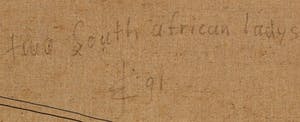 two South african ladys
£ 91